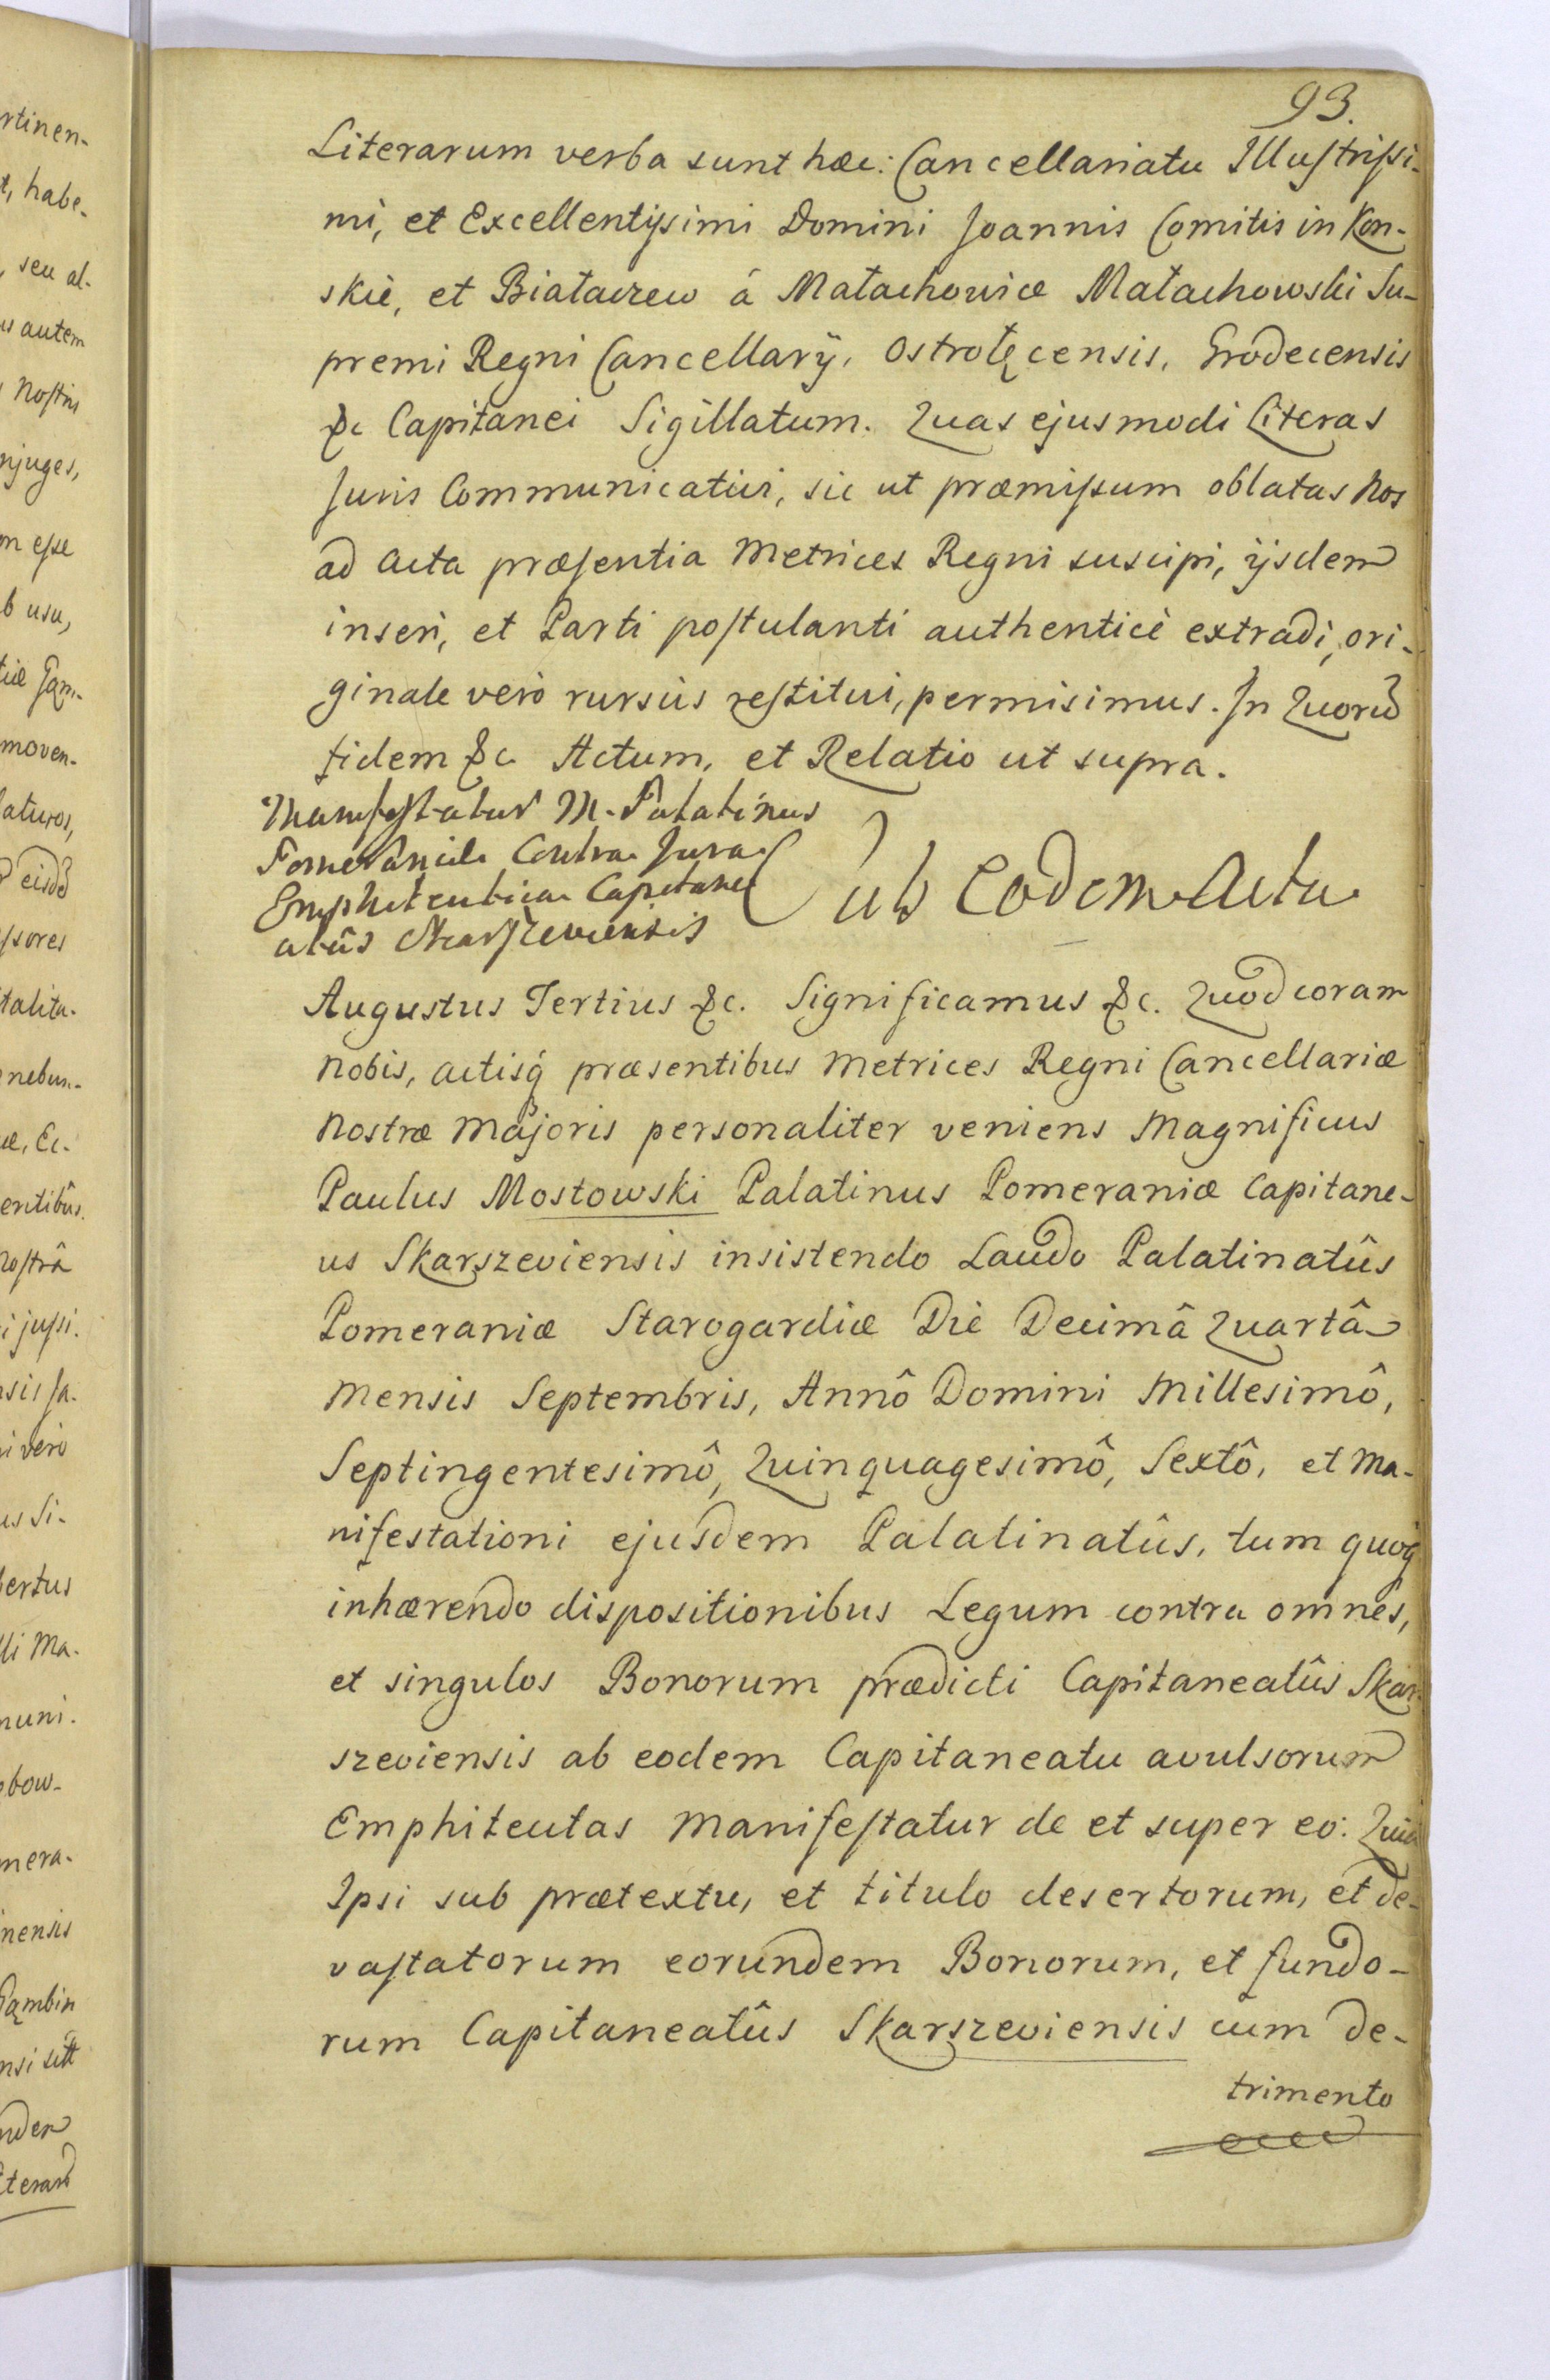 93.
Literarum verba sunt hæc: Cancellariatu Illustrissi-
mi, et Excellentissimi Domini Joannis Comitis in Kon-
skie, et Białaczew á Małachowice Małachowski Su-
premi Regni Cancellarÿ, Ostrołęcensis, Grodecensis
&c Capitanei Sigillatum. Quas ejusmodi Literas
Juris Communicativi, sic ut præmissum oblatas Nos
ad Acta præsentia Metrices Regni suscipi, ijsdem
inseri, et Parti postulanti authenticè extradi, ori-
ginale verò rursùs restitui, permisimus. In Quorũ
fidem &c. Actum, et Relatio ut supra.
Manifestatur M. Palatinus
Pomeraniæ Contra Jura
Emphiteutica Capitane
atûs Skarszeviensis
Sub Eodem Actu
Augustus Tertius &c. Significamus &c. Quod coram
Nobis, actisq́ præsentibus Metrices Regni Cancellariæ
Nostræ Majoris personaliter veniens Magnificus
Paulus Mostowski Palatinus Pomeraniæ Capitane-
us Skarszeviensis insistendo Laudo Palatinatûs
Pomeraniæ Starogardiæ Die Decimâ Quartâ
Mensis Septembris, Annô Domini Millesimô,
Septingentesimô, Quinquagesimô, Sextô, et Ma-
nifestationi ejusdem Palatinatûs, tum quoq́
inhærendo dispositionibus Legum contra omnes,
et singulos Bonorum prædicti Capitaneatûs Skar-
szeviensis ab eodem Capitaneatu avulsorum
Emphiteutas Manifestatur de et super eo: Quia
Ipsi sub prætextu, et titulo desertorum, et de-
vastatorum eorundem Bonorum, et fundo-
rum Capitaneatûs Skarszeviensis cum de-
trimento
rtinen-
t, habe-
, seu al-
us autem
Nostris
njuges,
m esse
b usu,
moven-
aturos,
eisdẽ
ssores
talita-
nebun-
æ, Ec-
entibûs
Nostrâ
i jussi.
sis Ja-
i verò
us Si-
bertus
li Ma-
muni.
bow-
mera-
nensis
Gąmbin
nden
Literarũ